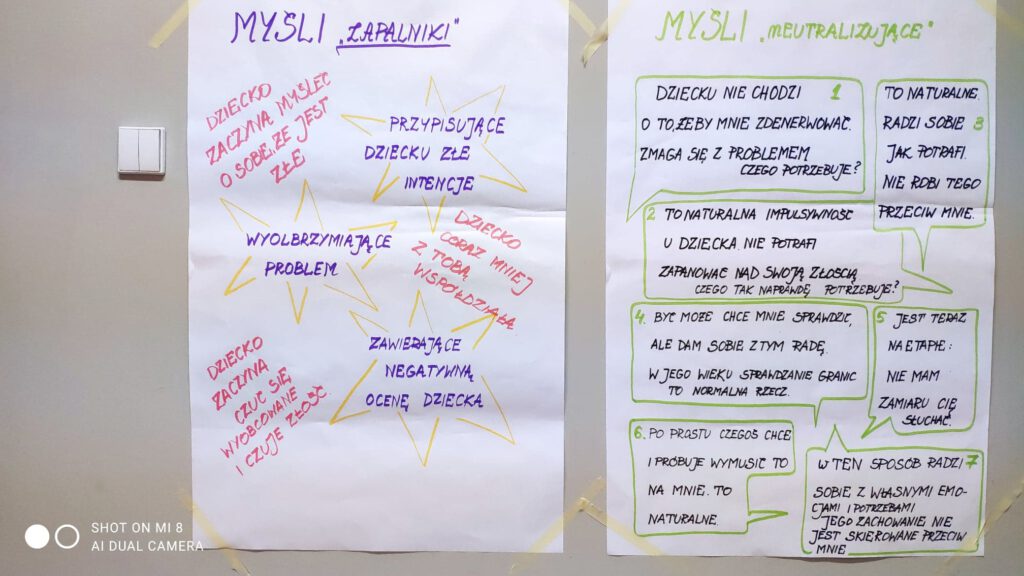 MYŚLI „ZAPALNIKI"
DZIECKO
ZACZYNA MYŚLEĆ
O SOBIE, ŻE JEST
ZŁE
PRZYPISUJĄCE
DZIECKU ZŁE
INTENCJE
WYOLBRZYMIAJĄCE
PROBLEM
DZIECKO
CORAZ MNIEJ
Z TOBĄ
WSPÓŁDZIAŁA
ZAWIERAJĄCE
NEGATYWNĄ
OCENĘ DZIECKA
DZIECKO
ZACZYNA
CZUĆ SIĘ
WYOBCOWANE
I CZUJE ZŁOŚĆ
MYŚLI „NEUTRALIZUJĄCE"
DZIECKU NIE CHODZI 1
O TO, ŻEBY MNIE ZDENERWOWAĆ.
ZMAGA SIĘ Z PROBLEMEM
CZEGO POTRZEBUJE?
2 TO NATURALNA IMPULSYWNOŚĆ
U DZIECKA. NIE POTRAFI
ZAPANOWAĆ NAD SWOJĄ ZŁOŚCIĄ
CZEGO TAK NAPRAWDĘ POTRZEBUJE?
TO NATURALNE.
RADZI SOBIE 3
JAK POTRAFI.
NIE ROBI TEGO
PRZECIW MNIE.
4. BYĆ MOŻE CHCE MNIE SPRAWDZIĆ,
ALE DAM SOBIE Z TYM RADĘ.
W JEGO WIEKU SPRAWDZANIE GRANIC
TO NORMALNA RZECZ.
5 JEST TERAZ
NA ETAPIE:
NIE MAM
ZAMIARU CIĘ
SŁUCHAĆ.
6. PO PROSTU CZEGOŚ CHCE
I PRÓBUJE WYMUSIĆ TO
NA MNIE. TO
NATURALNE.
W TEN SPOSÓB RADZI 7
SOBIE Z WŁASNYMI EMO-
CJAMI I POTRZEBAMI
JEGO ZACHOWANIE NIE
JEST SKIEROWANE PRZECIW
MNIE
SHOT ON MI 8
AI DUAL CAMERA